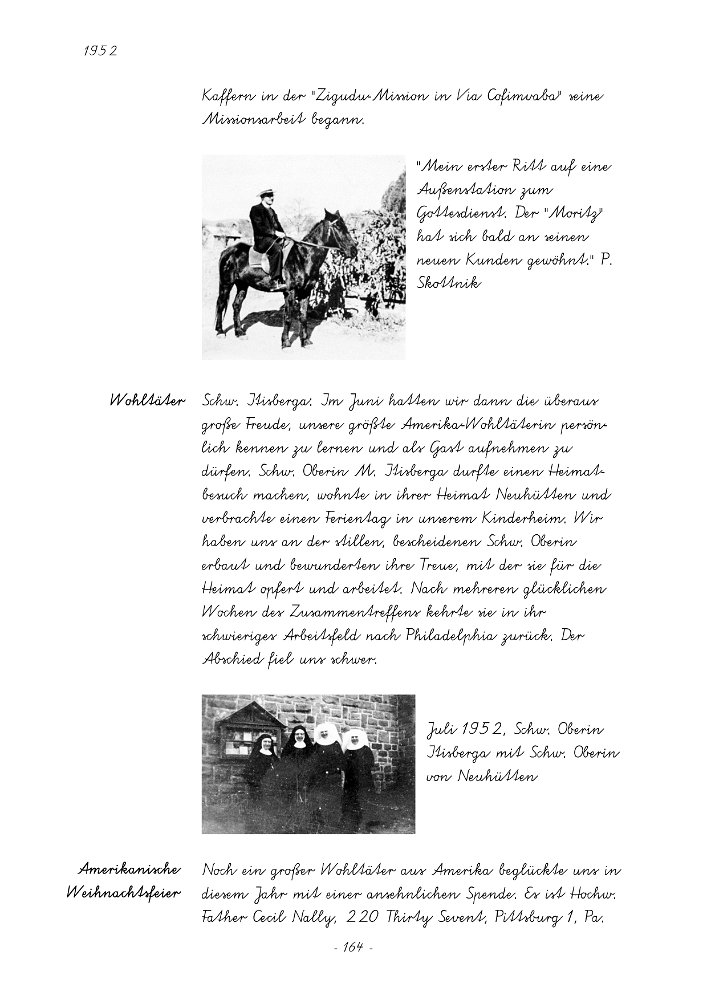 1952
Kaffern in der "Zigudu-Mission in Via Cofimvaba" seine
Missionsarbeit begann.
"Mein erster Ritt auf eine
Außenstation zum
Gottesdienst. Der "Moritz"
hat sich bald an seinen
neuen Kunden gewöhnt." P.
Skottnik
Wohltäter
Schw. Itisberga. Im Juni hatten wir dann die überaus
große Freude, unsere größte Amerika-Wohltäterin persön-
lich kennen zu lernen und als Gast aufnehmen zu
dürfen. Schw. Oberin M. Itisberga durfte einen Heimat-
besuch machen, wohnte in ihrer Heimat Neuhütten und
verbrachte einen Ferientag in unserem Kinderheim. Wir
haben uns an der stillen, bescheidenen Schw. Oberin
erbaut und bewunderten ihre Treue, mit der sie für die
Heimat opfert und arbeitet. Nach mehreren glücklichen
Wochen des Zusammentreffens kehrte sie in ihr
schwieriges Arbeitsfeld nach Philadelphia zurück. Der
Abschied fiel uns schwer.
Juli 1952, Schw. Oberin
Itisberga mit Schw. Oberin
von Neuhütten
Amerikanische
Weihnachtsfeier
Noch ein großer Wohltäter aus Amerika beglückte uns in
diesem Jahr mit einer ansehnlichen Spende. Es ist Hochw.
Father Cecil Nally, 220 Thirty Sevent, Pittsburg 1, Pa.
- 164 -